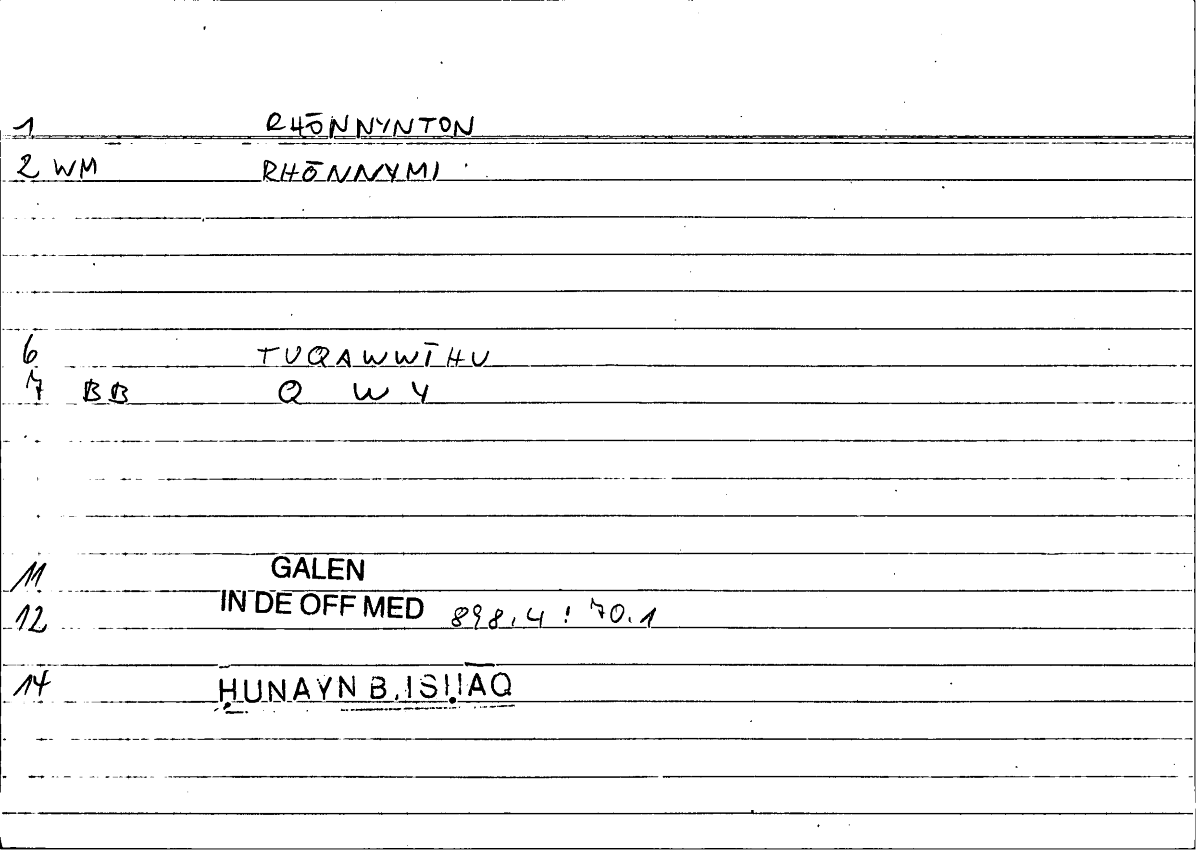 1 RHŌNNYNTON
2 WM RHŌNNYMI
6 TUQAWWĪHU
7 BB Q W Y
11 GALEN
12 IN DE OFF MED 898,4 : 70.1
14 ḤUNAYN B. ISḤĀQ